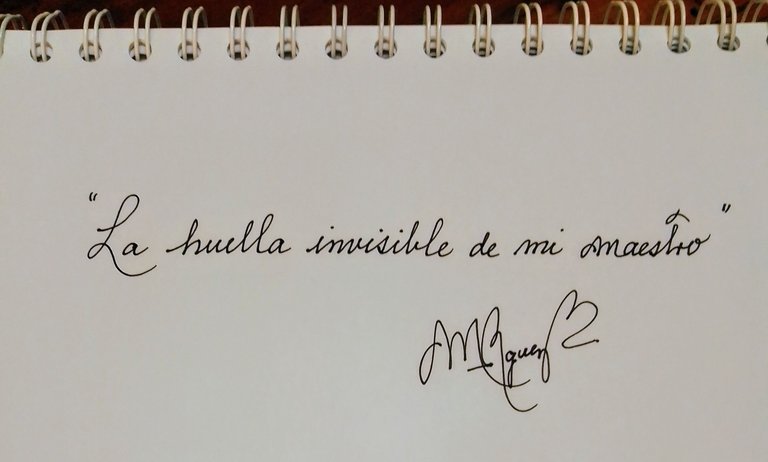 "La huella invisible de mi maestro"